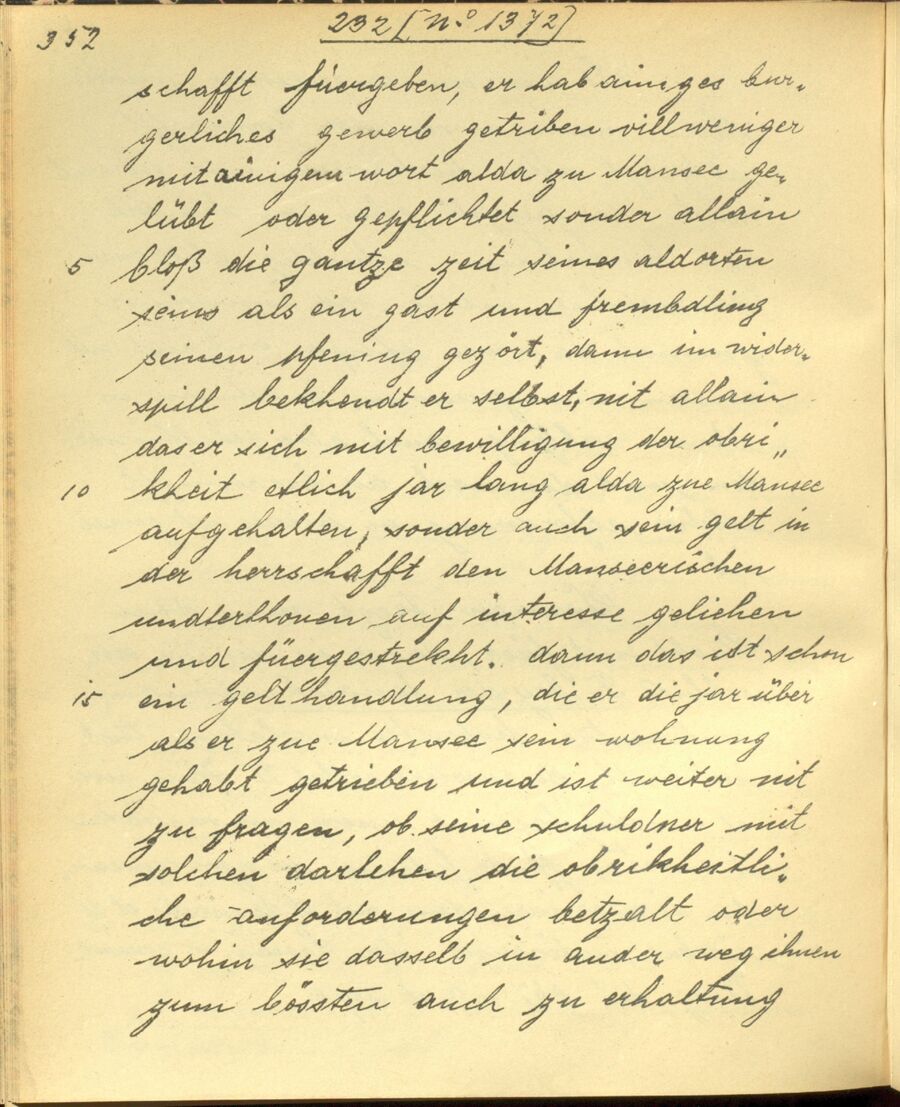 352
232 [No 1372]
schafft füergeben, er hab ainiges bur„
gerliches gewerb getriben vill weniger
mit ainigem wort alda zu Mansee ge„
lübt oder gepflichtet sonder allain
5 bloß die gantze zeit seines aldorten
seins als ein gast und frembdling
seinen pfening gezört, dann im wider„
spill bekhendt er selbst, nit allain
das er sich mit bewilligung der obri„
10 kheit etlich jar lang alda zue Mansee
aufgehalten, sonder auch sein gelt in
der herrschafft den Manseerischen
undterthonen auf interesse geliehen
und füergestrekht. dann das ist schon
15 ein gelt handlung, die er die jar über
als er zue Mansee sein wohnung
gehabt getrieben und ist weiter nit
zu fragen, ob seine schuldner mit
solchen darlehen die obrikheitli„
che anforderungen betzalt oder
wohin sie dasselb in ander weg ihnen
zum bössten auch zu erhaltung